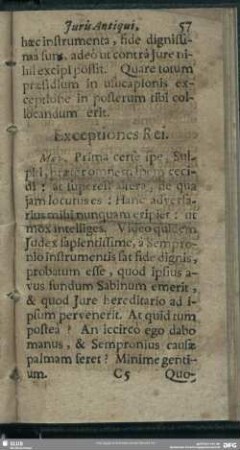 Juris Antiqui. 57
hæc instrumenta, fide dignissi-
ma sunt, adeò ut contrà Jure ni-
hil excipi possit. Quare totum
præsidium in usucapionis ex-
ceptione in posterum tibi col-
locandum erit.
Exceptiones Rei.
Mev. Prima certè spe, Sul-
piti, præter omnem spem ceci-
di: at superest altera, de qua
jam locutus es: Hanc adversa-
rius mihi nunquam eripiet: ut
mox intelliges. Video quidem,
Judex sapientissime, à Sempro-
nio instrumentis sat fide dignis,
probatum esse, quod ipsius a-
vus fundum Sabinum emerit,
& quod Jure hereditario ad i-
psum pervenerit. At quid tum
postea? An iccirco ego dabo
manus, & Sempronius causæ
palmam feret? Minime genti-
um. C5 Quo-